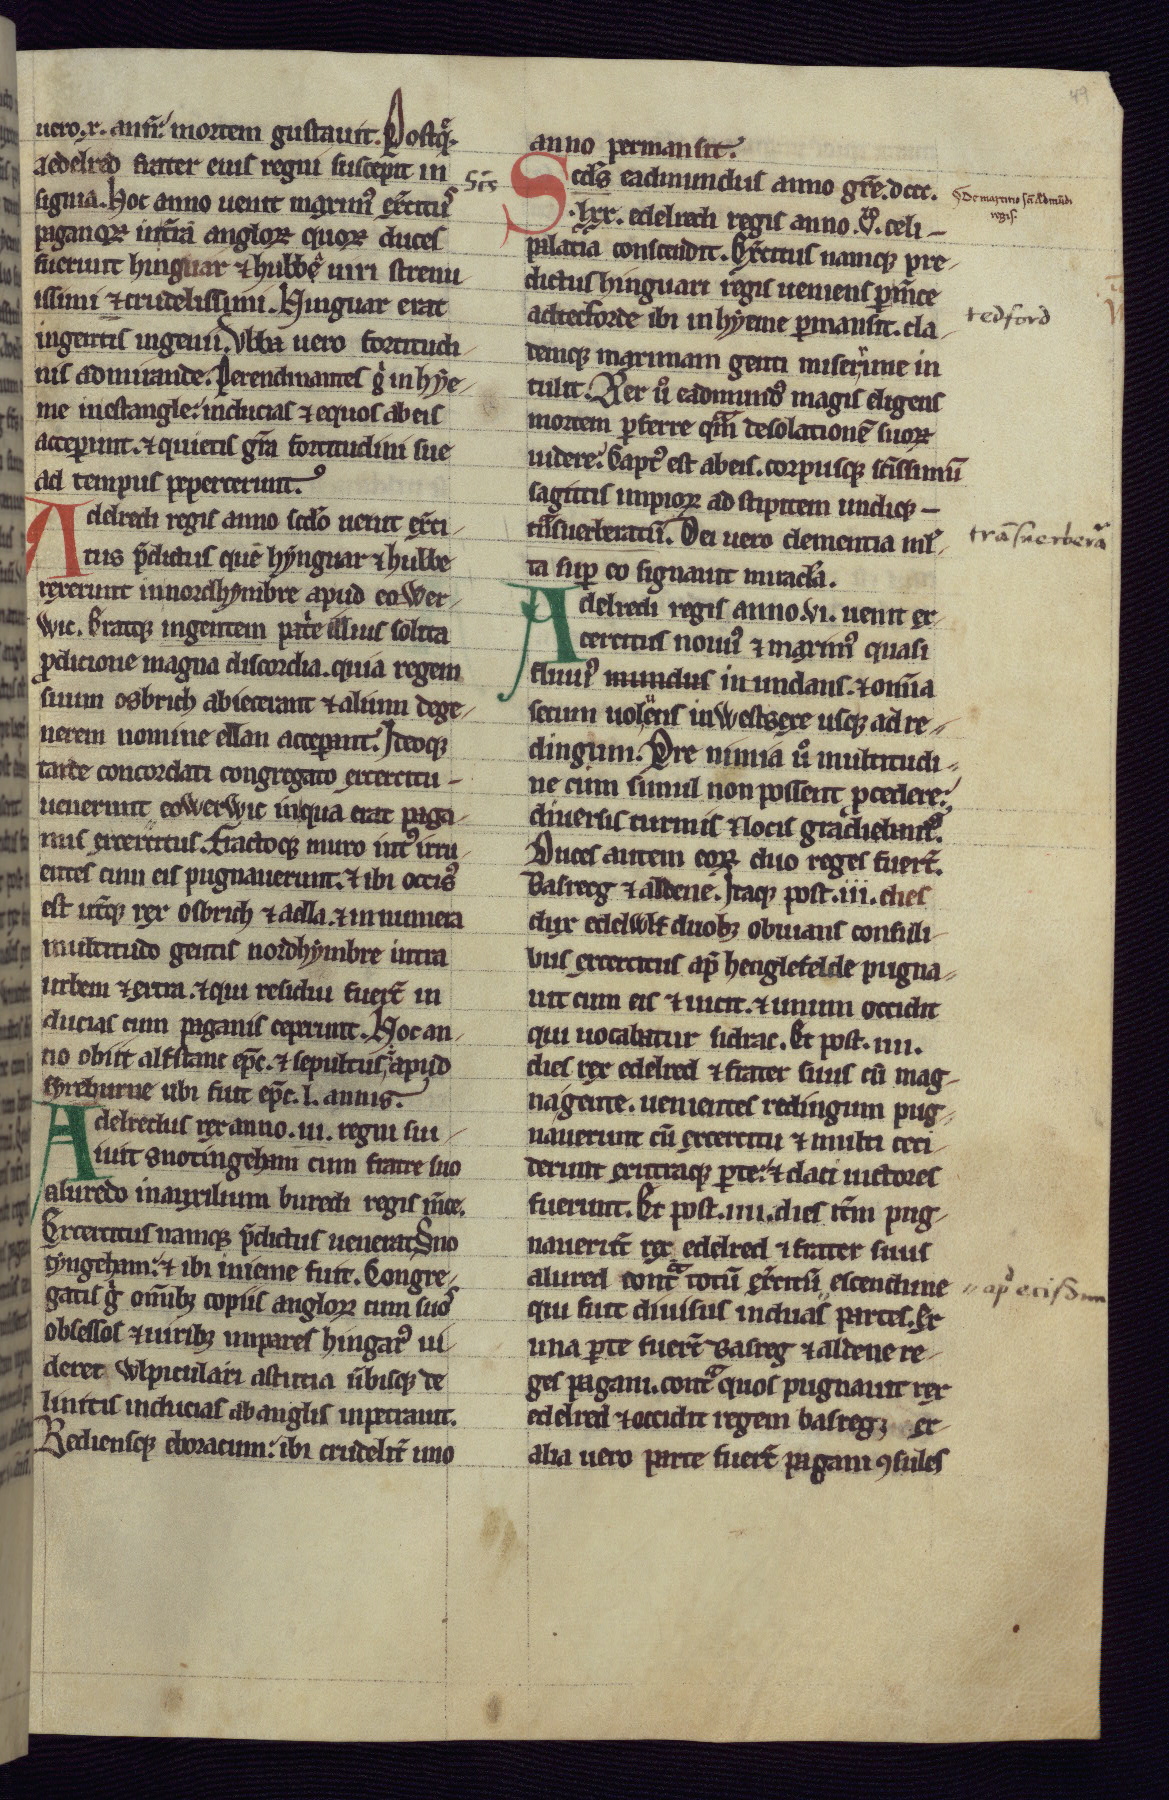 uero.x. ann̄. mortem gustauit. Postq̄
aedelred frater eius regni suscepit in
signia. Hoc anno uenit maximꝰ ex̄citꝰ
paganoꝝ int̄rā angloꝝ quoꝝ duces
fuerunt hinguar ⁊ hubbe uiri strenu
issimi ⁊ crudelissimi. Hinguar erat
ingentis ingenii. Vbba uero fortitudi
nis admirande. Perendinantes g̊ in hẏe
me inestangle: inducias ⁊ equos ab eis
acceperunt. ⁊ quietis gr̄a fortitudini sue
ad tempus pepercerunt.
Adelredi regis anno sc̄do uenit ex̄ci
tus p̄dictus que hẏnguar ⁊ hubbe
rexerunt innordhẏmbre apud eoWer
Wic. Eratq; ingentem pat̄e illius solita
ꝑdicione magna discordia. quia regem
suum osbrich abiecerant ⁊ alium dege
nerem nomine ellan acceperant. Ideoq;
tarde concordati congregato exercitu
uenerunt eoWerWic inqua erat paga
nus exercitus. Fractoq; muro intꝰ irru
entes cum eis pugnauerunt. ⁊ ibi occisꝰ
est ut̄q; rex osbrich ⁊ aella. ⁊ innumera
multitudo gentis nordhẏmbre intra
urbem ⁊ extra. ⁊ qui residui fuer̄t in
ducias cum paganis ceperunt. Hoc an
no obiit alfstanc ep̄c. ⁊ sepultus apud
sẏreburne ubi fuit ep̄c. l. annis.
Adelredus rex anno. iii. regni sui
iuit snotingeham cum fratre suo
aluredo inauxilium buredi regis m̄ce.
Exercitus namq; p̄dictus uenerat Sno
tẏngeham: ⁊ ibi inieme fuit. Congre
gatis g̊ om̄ib; copiis angloꝝ cum suoꝰ
obsessos ⁊ uirib; impares hingarꝰ ui
deret Wlpiculari astucia u̅bisq; de
linitis inducias ab anglis inpetrauit.
Rediensq; eboracum: ibi crudelit̄ uno
anno permansit.
Sc̄s
Sc̄ds eadmundus anno gr̄e. dccc.
.lxx. edelredi regis anno .v. celi
palatia conscendit. Ex̄citus namq; pre
dictus hinguari regis ueniens ꝑm̄ce
adtedforde ibi inhẏeme ꝑmansit. cla
demq; maximam genti miser̄ime in
tulit. Rex u̇ eadmundꝰ magis eligens
mortem ꝑferre qm̄ desolationē suoꝝ
uidere: Captꝰ est abeis. corpusq; sc̄issimū
sagittis impioꝝ ad stipitem undiq;
tn̄suerberatū. Dei uero clementia ml̄
ta suꝑ eo signauit miracl̄a.
Adelredi regis anno .vi. uenit ex
cercitus nouꝰ ⁊ maximꝰ quasi
fluuiꝰ mundus inundans. ⁊ om̄ia
secum uoluens inWestsexe usq; ad re
dingum. Pre nimia u̇ multitudi
ne cum simul non possent ꝓcedere:
diuersis turmis ⁊ locis gradiebantꝰ.
Duces autem eoꝝ duo reges fuer̄t.
Basreeg ⁊ aldene. Itaq; post .iii. dies
dux edelWlf duob; obuians consuli
bus exercitus ap̄ henglefelde pugna
uit cum eis ⁊ uicit. ⁊ unum occidit
qui uocabatur sidrac. Et post .iiii.
dies rex edelred ⁊ frater suus cū mag
na gente. uenientes redingum pug
nauerunt cū exercitu ⁊ multi ceci
derunt exutraq; ꝑte: ⁊ daci uictores
fuerunt. Et post .iiii. dies it̄m pug
nauer̄t rex edelred ⁊ frater suus
alured contᵃ totū ex̄citū escendune
qui fuit diuisus induas partes. Ex
una ꝑte fuer̄t Basreg ⁊ aldene re
ges pagani. contᵃ quos pugnauit rex
edelred ⁊ occidit regem basreg; ex
alia uero parte fuer̄t pagani ꝯsules
49
De martirio sc̄i Admūdi
regis
tedford
trāsuerberā